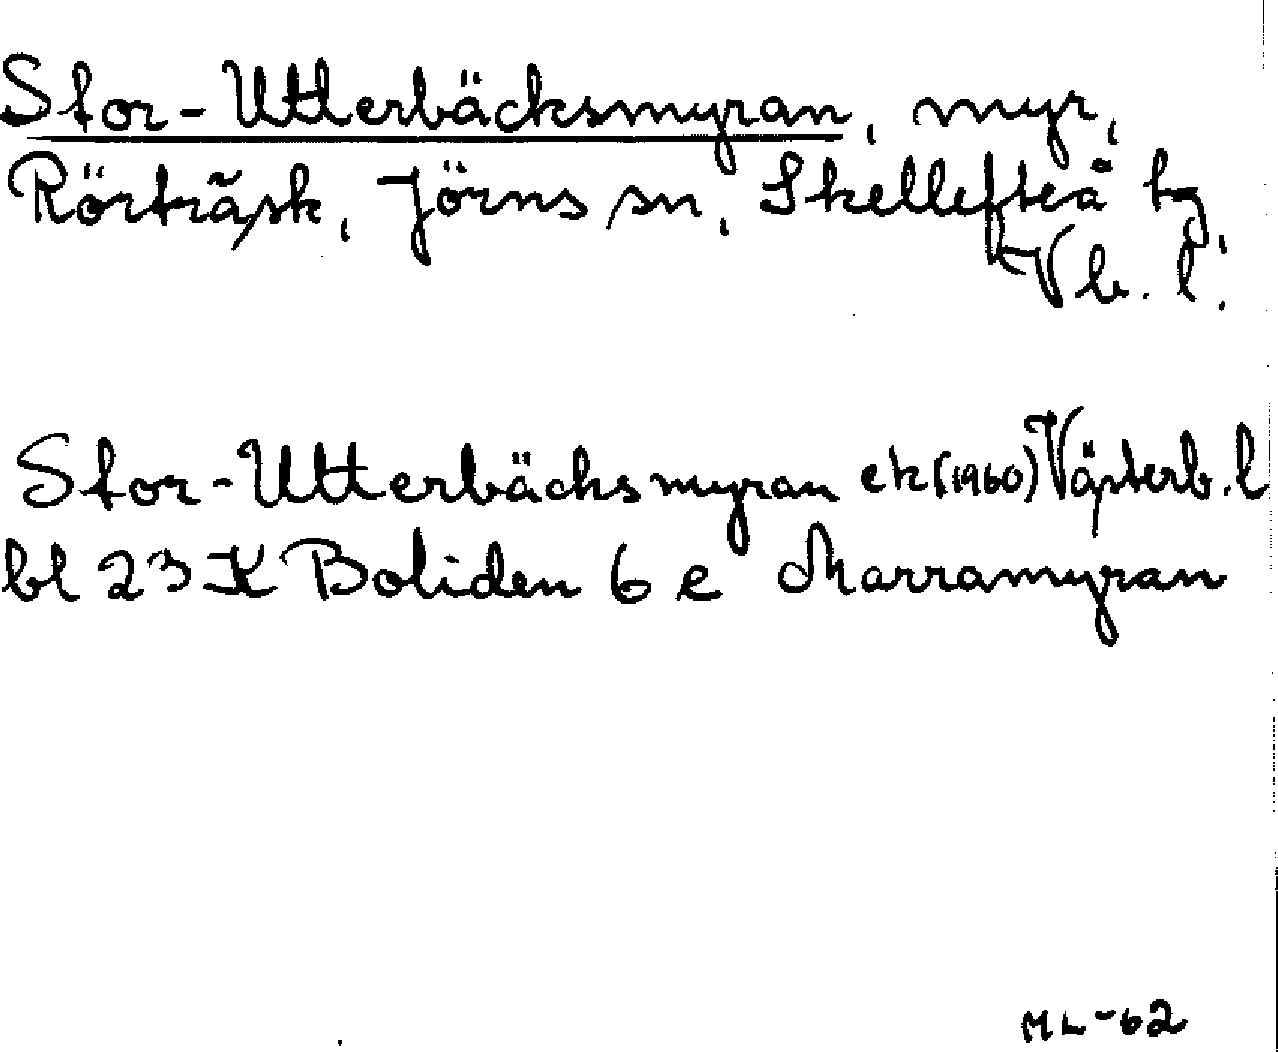 Stor-Utterbäcksmyran, myr,
Rörträsk, Jörns sn, Skellefteå tg,
Vb. l.
Stor-Utterbäcksmyran ek (1960) Västerb. l
bl 23 K Boliden 6 e Marramyran
ML-62